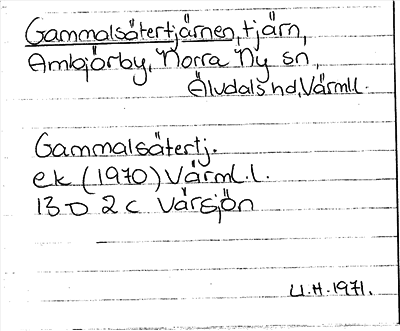 Gammalsätertjärnen, tjärn,
Ambjörby, Norra Ny sn,
Älvdals hd, Värml.
Gammalsätertj.
ek (1970) Värml.l.
13 D 2 c Vårsjön
U.H. 1971.